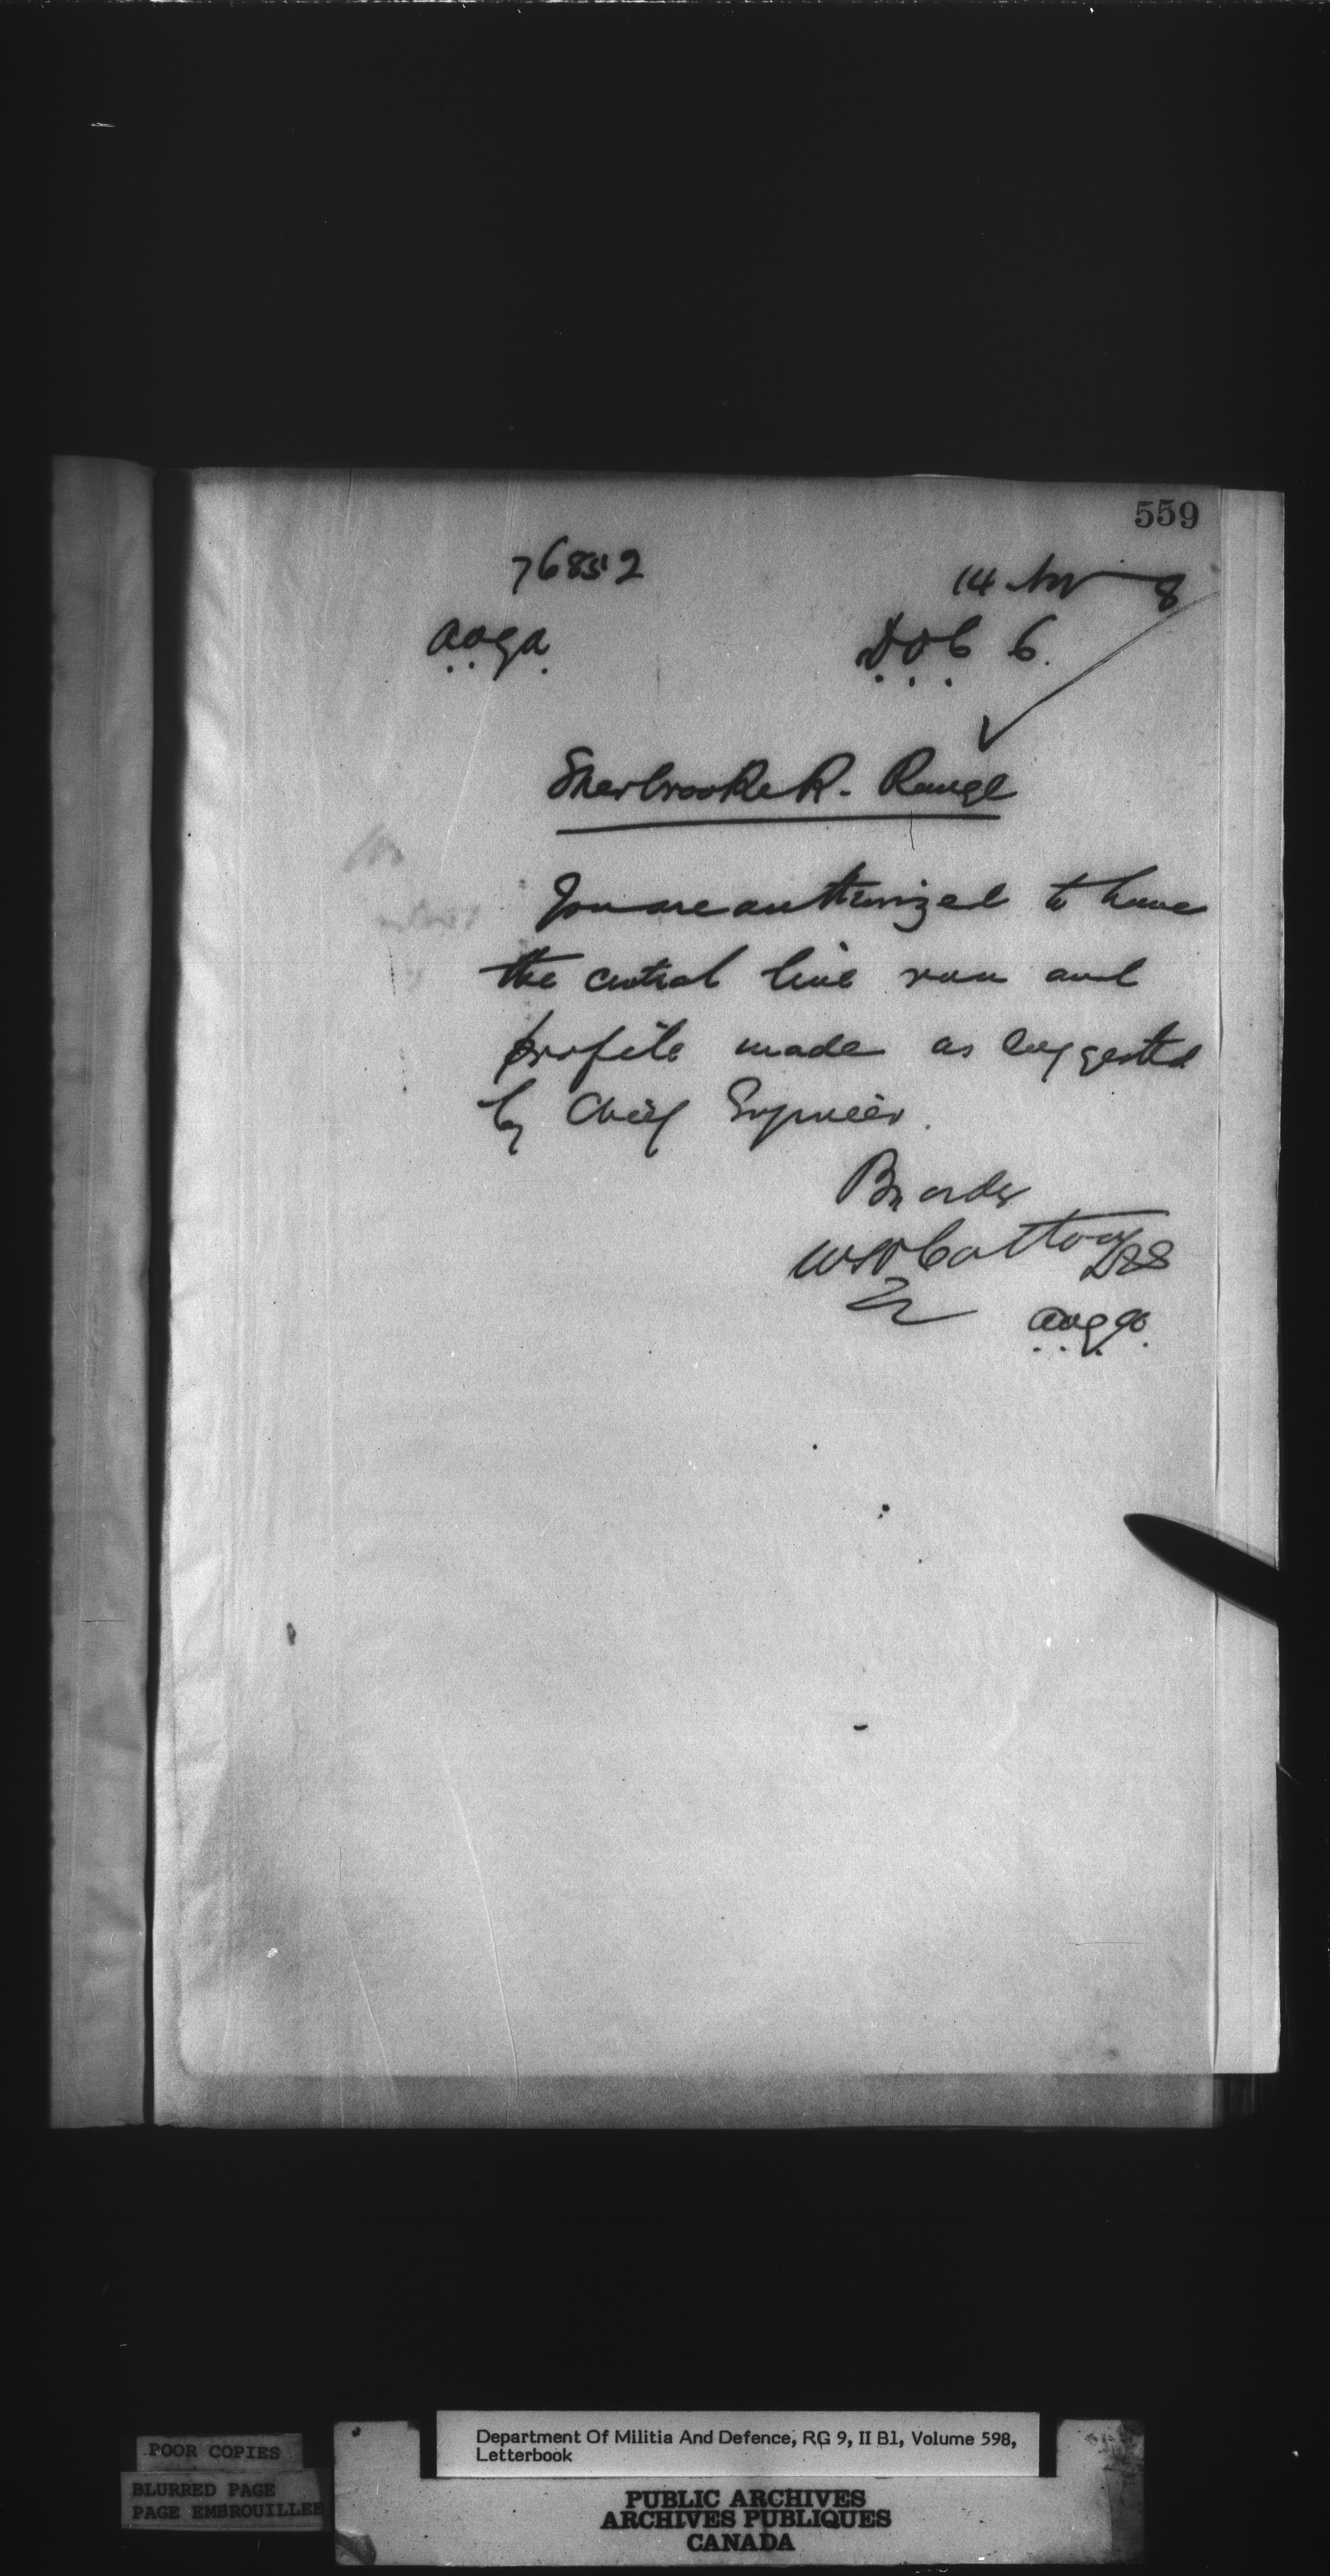 559
76852
14 Nov 8
D.O.C. 6.
Sherbrooke R. Range
You are authorized to have
the central line run and
profile made as suggested
by Chief Engineer.
By order
Department Of Militia And Defence, RG 9, II B1, Volume 598,
Letterbook
POOR COPIES
BLURRED PAGE
PAGE EMBROUILLEE
PUBLIC ARCHIVES
ARCHIVES PUBLIQUES
CANADA